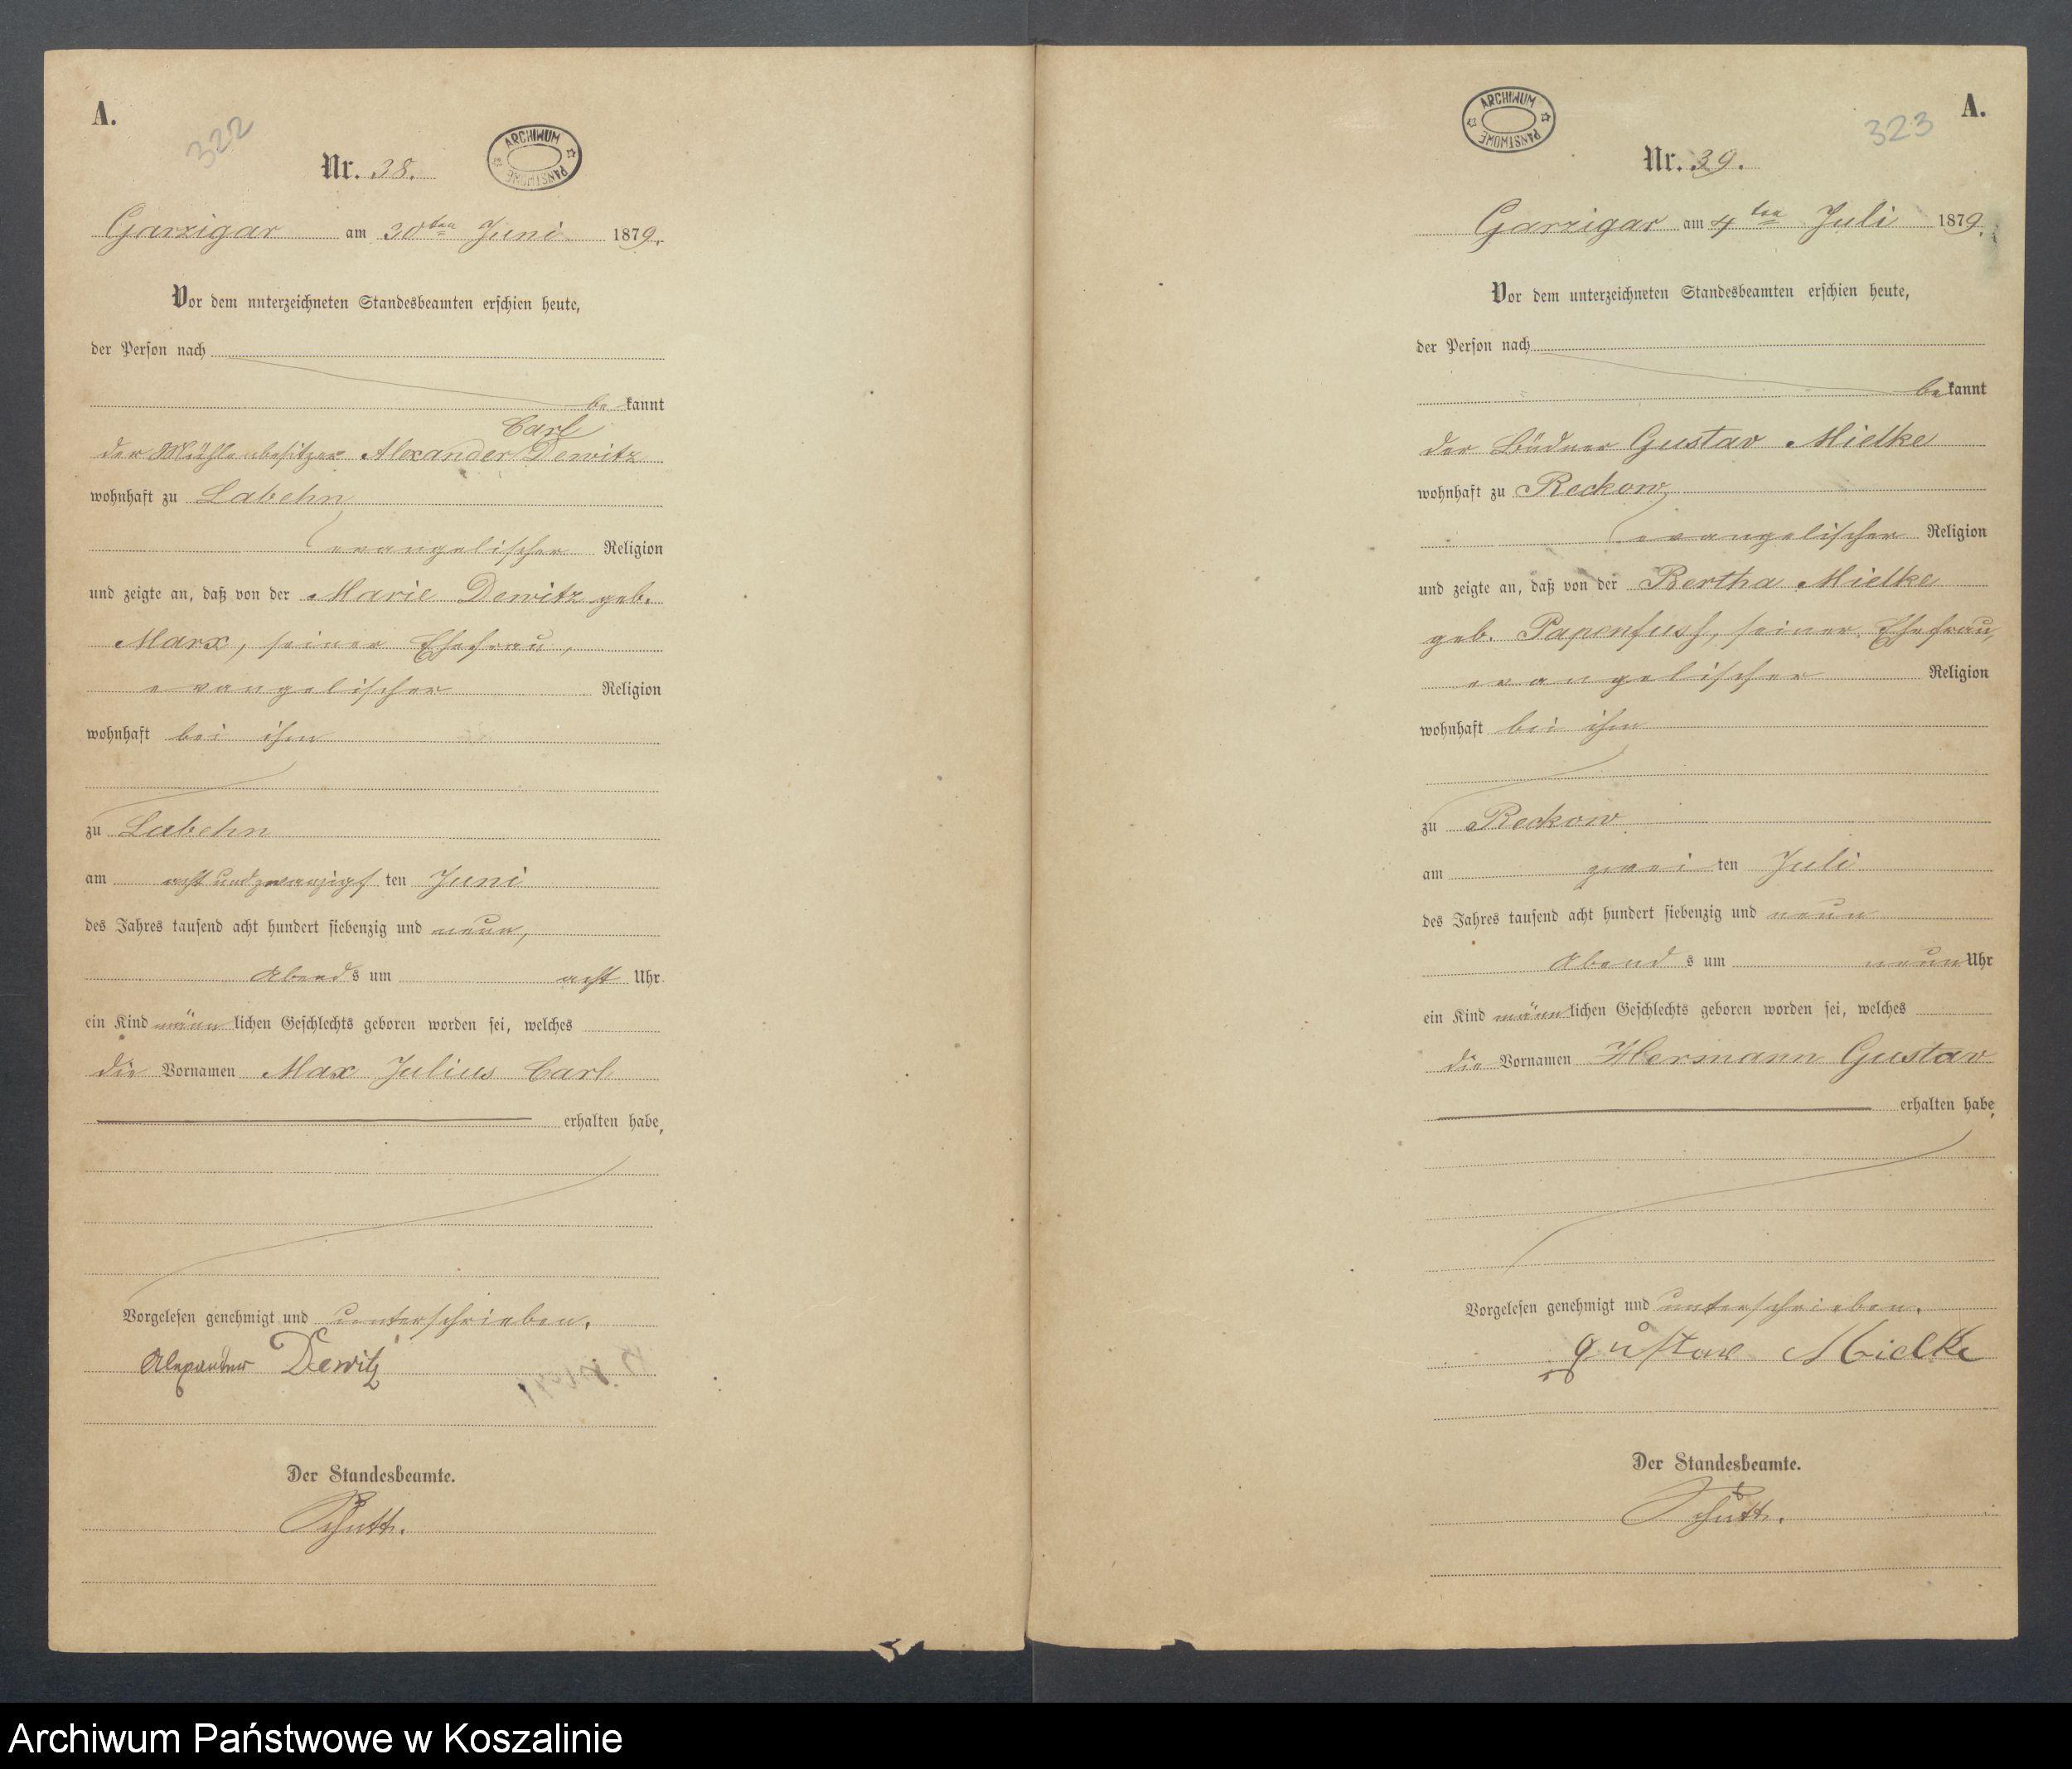 A.
322
Nr. 38.
ARCHIWUM PAŃSTWOWE
Garzigar am 30ten Juni 1879.
Vor dem unterzeichneten Standesbeamten erschien heute,
der Person nach
be kannt
Carl
der Mühlenbesitzer Alexander Dewitz
wohnhaft zu Labehn
evangelischer Religion
und zeigte an, daß von der Marie Dewitz geb.
Marx, seiner Ehefrau,
evangelischer Religion
wohnhaft bei ihm
zu Labehn
am acht und zwanzigs ten Juni
des Jahres tausend acht hundert siebenzig und neun,
Abend s um acht Uhr
ein Kind männ lichen Geschlechts geboren worden sei, welches
die Vornamen Max Julius Carl
erhalten habe,
Vorgelesen genehmigt und unterschrieben.
Alexander Dewitz
Der Standesbeamte.
A.
323
ARCHIWUM PAŃSTWOWE
Nr. 39.
Garzigar am 4ten Juli 1879.
Vor dem unterzeichneten Standesbeamten erschien heute,
der Person nach
be kannt
der Büdner Gustav Mielke
wohnhaft zu Reckow
evangelischer Religion
und zeigte an, daß von der Bertha Mielke
geb. Papenfuss, seiner Ehefrau,
evangelischer Religion
wohnhaft bei ihm
zu Reckow
am zwei ten Juli
des Jahres tausend acht hundert siebenzig und neun
Abend s um neun Uhr
ein Kind männ lichen Geschlechts geboren worden sei, welches
die Vornamen Hermann Gustav
erhalten habe,
Vorgelesen genehmigt und unterschrieben.
Gustav Mielke
Der Standesbeamte.
Archiwum Państwowe w Koszalinie